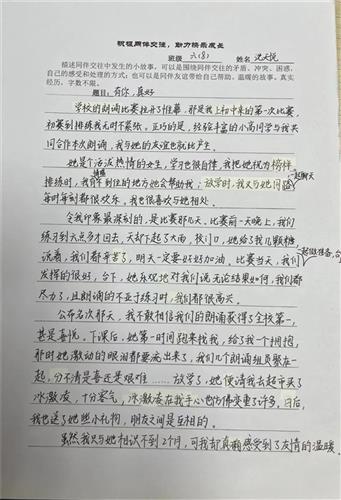 积极同伴交往，助力快乐成长
班级 六(8) 姓名 沈天悦
描述同伴交往中发生的小故事，可以是围绕同伴交往的矛盾、冲突、困惑，
自己的感受和处理的方式；也可以是同伴友谊带给自己帮助、温暖的故事。真实
经历，字数不限。
题目：有你，真好
学校的朗诵比赛拉开了帷幕，那是我上初中来的第一次比赛，
初赛到排练我无时不紧张。正巧的是，经验丰富的小高同学与我共
同合作本次朗诵，我与她的友谊就此产生。
她是个活泼热情的女生，学习也很自律，我把她视为榜样
排练时，我有情感不到位的地方她会帮助我；放学时，我又与她同路一起聊天
每时每刻都很欢乐，我也很喜欢与她相处。
令我印象最深刻的，是比赛那几天。比赛前一天晚上，我们
练习到六点多才回去，天却下起了大雨，校门口，她给了我几颗糖
说着，我们都辛苦了，明天一定要好好加油，比赛当天，我们一起做准备，台
发挥的很好，台下，她乐观地对我们说无论结果如何，我们都
尽力了，且朗诵的不亚于练习时，我们都很高兴。
公布名次那天，我不敢相信我们的朗诵获得了全校第一，
甚是喜悦。下课后，她第一时间跑来找我，给了我一个拥抱，
那时她激动的眼泪都要流出来了，我们几个朗诵组员聚在一
起，分不清是喜还是艰难……放学了，她便请我去超市买了
冰激凌，十分客气，冰激凌在我手心也仿佛变重了许多。日后，
我也送了她些小礼物，朋友之间是互相的。
虽然我只与她相识不到2个月，可我却真确感受到了友情的温暖。